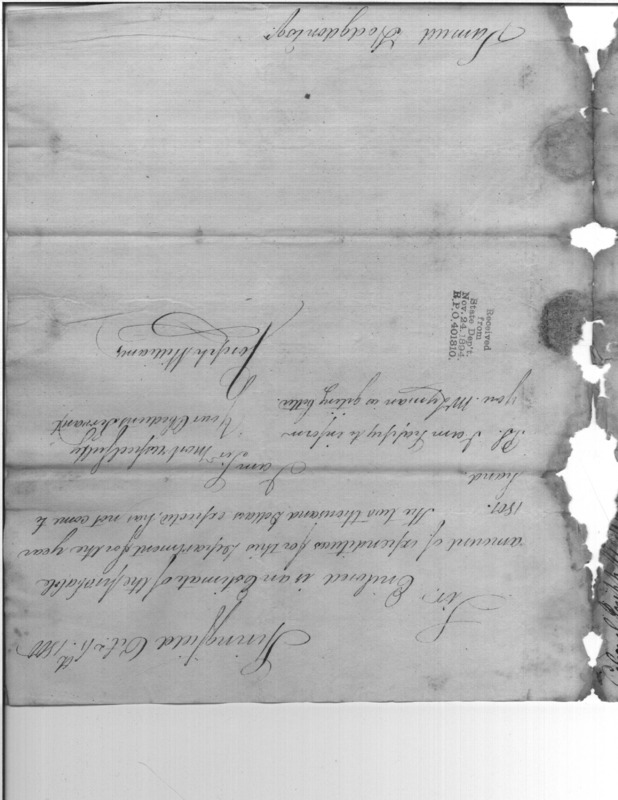 Springfield Oct. 11th 1800
Sir,
Enclosed is an Estimate of the probable
amount of expenditures for this department for the year
1801. The two thousand Dollars expected, has not come to
hand.
I am
Sir
most respectfully
Your Obedient Servant
Joseph Williams
Ps. I am happy to inform
you Mr Lyman is geting better.
Received
from
State Dep't.
Nov. 24, 1894.
R.P.O. 401810.
Samuel Hodgdon Esqr